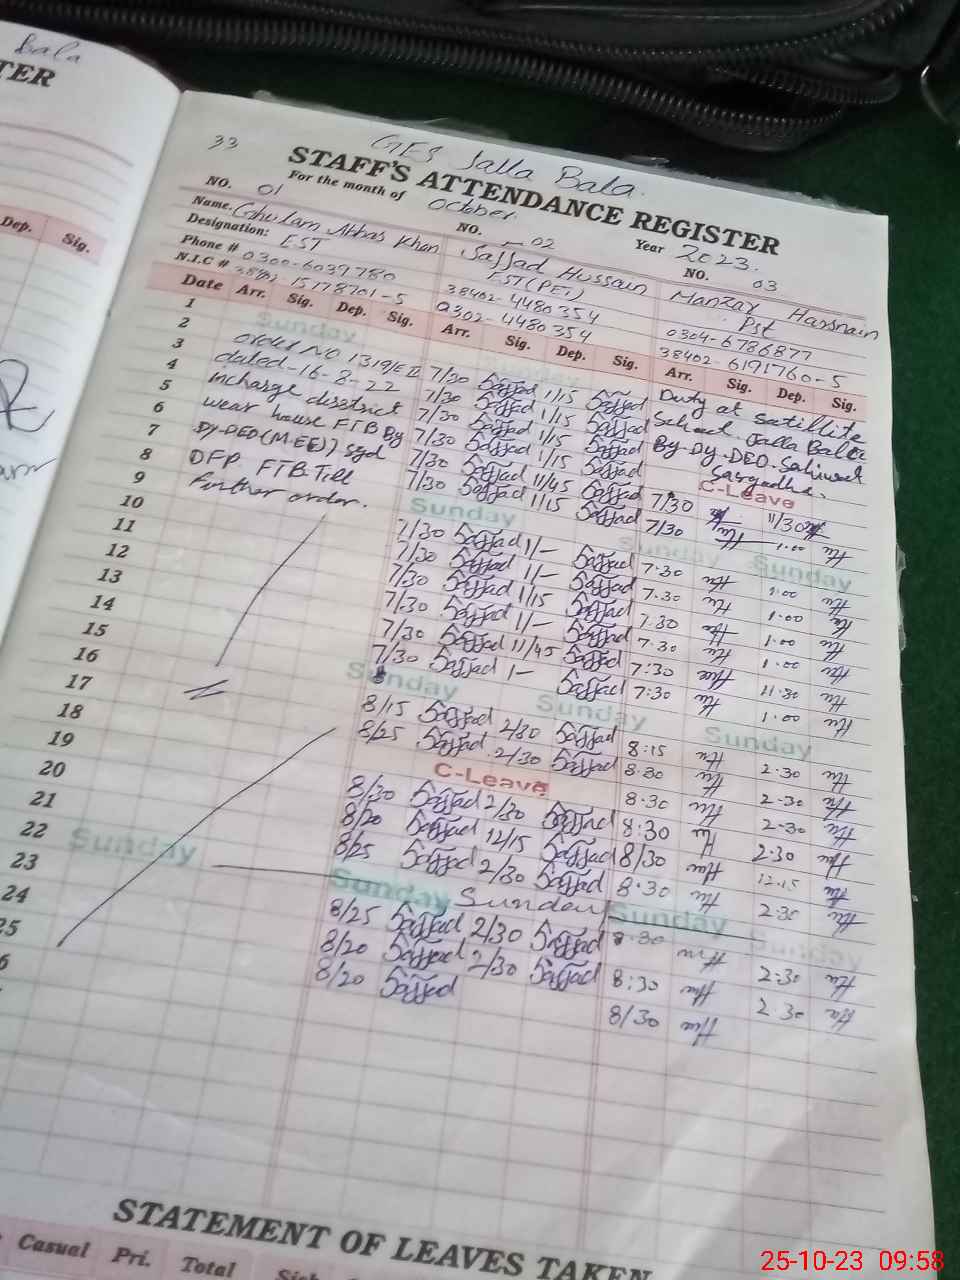 Bala
TER
Dep. Sig.
33
GES Jalla Bala.
STAFF'S ATTENDANCE REGISTER
For the month of October. Year 2023.
NO. 01 NO. 02 NO. 03
Name. Ghulam Abbas Khan Sajjad Hussain Manzar Hassnain
Designation: EST EST(PET) Pst
Phone # 0300-6039780 38402-4480354 0304-6786877
N.I.C # 15178701-5 0302-4480354 38402-6191760-5
Date Arr. Sig. Dep. Sig. Arr. Sig. Dep. Sig. Arr. Sig. Dep. Sig.
1 Sunday Sunday
2 order No 1319/E II 7/30 Sajjad 1/15 Sajjad Duty at Satillite
3 dated-16-8-22 7/30 Sajjad 1/15 Sajjad School Jalla Bala
4 incharge disstrict 7/30 Sajjad 1/15 Sajjad By Dy. DEO. Sahiwal
5 wear house FTB By 7/30 Sajjad 1/15 Sajjad Sargodha.
6 Dy-DEO(M-EE) sgd 7/30 Sajjad 11/45 Sajjad C-Leave
7 DFP. FTB Till 7/30 Sajjad 1/15 Sajjad 7/30 11/30
8 further order. Sunday 7/30 1.00
Sunday Sunday
9 7/30 Sajjad 1/- Sajjad 7.30 1.00
10 7/30 Sajjad 1/- Sajjad 7.30 1.00
11 7/30 Sajjad 1/15 Sajjad 7.30 1.00
12 7/30 Sajjad 1/- Sajjad 7.30 1.00
13 7/30 Sajjad 11/45 Sajjad 7:30 11.30
14 7/30 Sajjad 1- Sajjad 7:30 1.00
15 Sunday Sunday Sunday
16 8/15 Sajjad 2/30 Sajjad 8:15 2.30
17 8/25 Sajjad 2/30 Sajjad 8.30 2.30
18 C-Leave 8.30 2.30
19 8/30 Sajjad 2/30 Sajjad 8:30 2.30
20 8/20 Sajjad 12/15 Sajjad 8/30 12.15
21 8/25 Sajjad 2/30 Sajjad 8.30 2.30
22 Sunday Sunday Sunday Sunday Sunday
23 8/25 Sajjad 2/30 Sajjad 8.30 2.30
24 8/20 Sajjad 2/30 Sajjad 8:30 2.30
25 8/20 Sajjad 8/30
6
STATEMENT OF LEAVES TAKEN
Casual Pri. Total
25-10-23 09:58